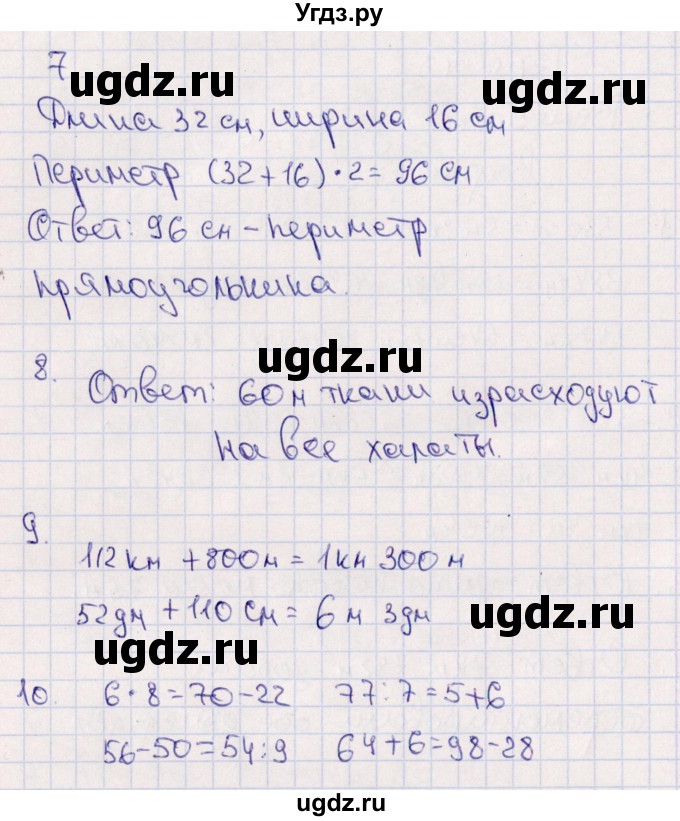 Угдз.ру
7
ugdz.ru ugdz.ru
Длина 32 см, ширина 16 см
Периметр (32+16)·2=96 см
Ответ: 96 см – периметр
прямоугольника.
ugdz.ru
8. Ответ: 60 м ткани израсходуют
на все халаты.
9.
1/2 км + 800 м = 1 км 300 м
ugdz.ru
52 дм + 110 см = 6 м 3 дм
ugdz.ru
10. 6·8=70-22 77:7=5+6
56-50=54:9 64+6=98-28
ugdz.ru